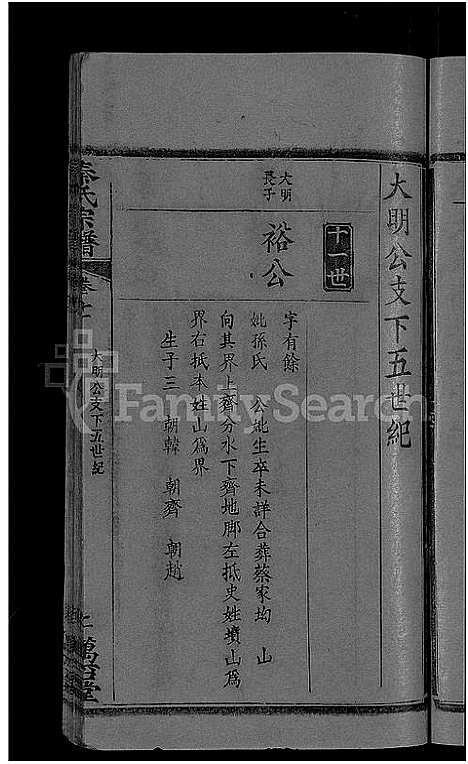 大明公支下五世紀
十一世
大明
長子
裕公
字有餘
妣孫氏 公妣生卒未詳合葬蔡家均 山
向其界上齊分水下齊地脚左抵史姓墳山為
界右抵本姓山為界
生子三 朝韓 朝齊 朝趙
秦氏宗譜
大明公支下五世紀
萬石堂
FamilySearch